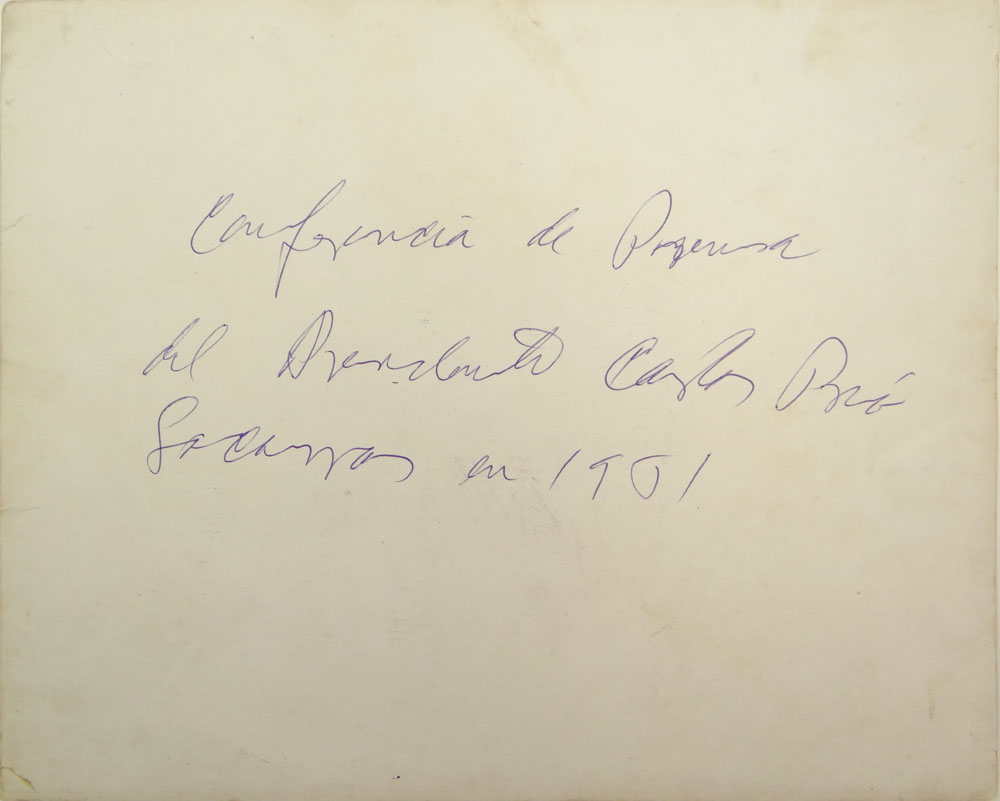 Conferencia de Prensa
del Presidente Carlos Prió
Socarras en 1951